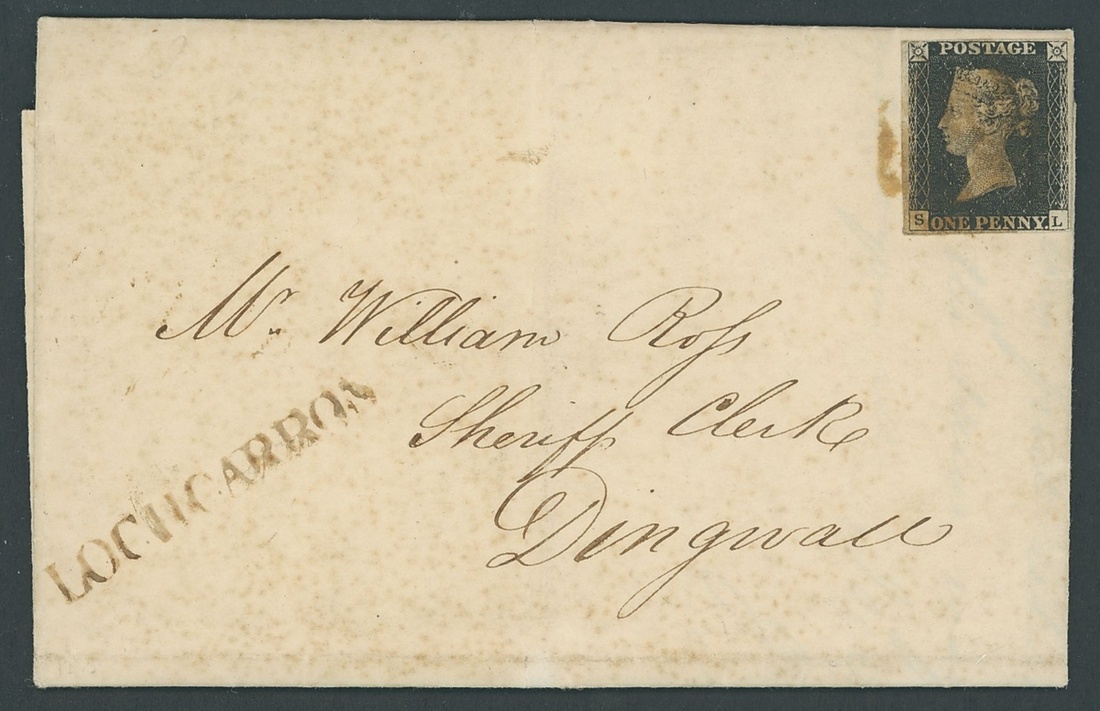 POSTAGE
S ONE PENNY. L
Mr. William Ross
Sheriff Clerk
Dingwall
LOCHCARRON